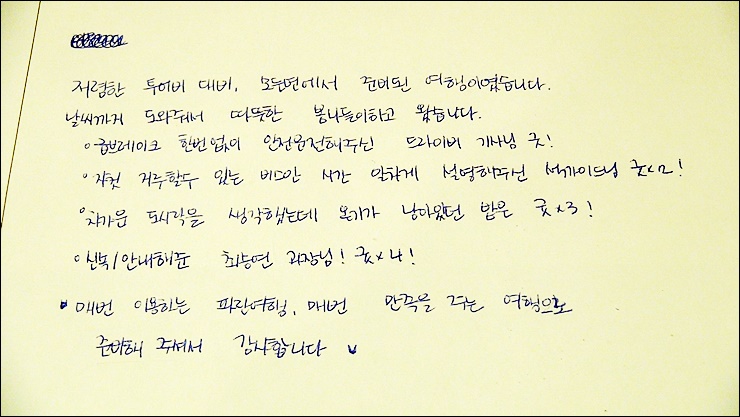 저렴한 투어비 대비, 모든면에서 준비된 여행이였습니다.
날씨까지 도와줘서 따뜻한 봄나들이하고 왔습니다.
급브레이크 한번없이 안전운전해주신 드라이버 기사님 굿!
자칫 지루할수 있는 버스안 시간 알차게 설명해주신 서가이드님 굿x2!
차가운 도시락을 생각했는데 온기가 남아있던 밥은 굿x3!
신속/안내해준 최승연 과장님! 굿x4!
매번 이용하는 파란여행, 매번 만족을 주는 여행으로
준비해 주셔서 감사합니다